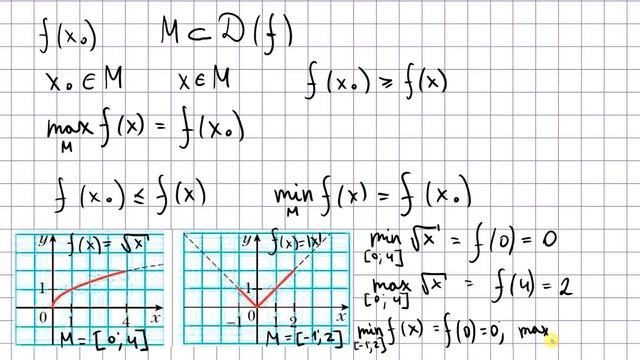 f(x₀)   M ⊂ D(f)
x₀ ∈ M   x ∈ M   f(x₀) ⩾ f(x)
max f(x) = f(x₀)
M
f(x₀) ≤ f(x)   min f(x) = f(x₀)
M
y f(x) = √x
1
0 1 4 x
M = [0; 4]
y f(x) = |x|
1
-1 0 1 2 x
M = [-1; 2]
min √x = f(0) = 0
[0; 4]
max √x = f(4) = 2
[0; 4]
min f(x) = f(0) = 0, max
[-1; 2]